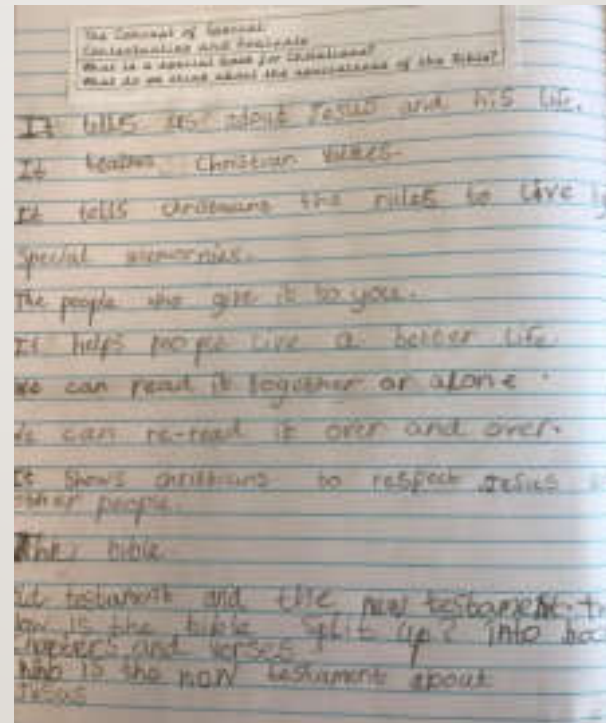 The Concept of Special
Contextualise and Evaluate
What is a special book for Christians?
What do we think about the of the Bible?
It tells us about Jesus and his life.
It Christian
It tells christians the rules to live
Special
The people who give it to you.
It helps people live a better life.
we can read it together or alone.
can re-read it over and over.
It shows christians to respect Jesus
other people.
The bible
testament and the new testament.
is the bible split up? into
chapters and verses
who is the new testament about
Jesus